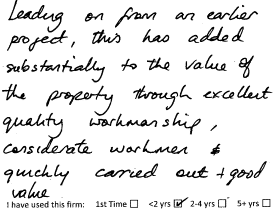 Leading on from an earlier
project, this has added
substantially to the value of
the property through excellent
quality workmanship,
considerate workmen &
quickly carried out + good
value
I have used this firm: 1st Time ☐ <2 yrs ☑ 2-4 yrs ☐ 5+ yrs: ☐